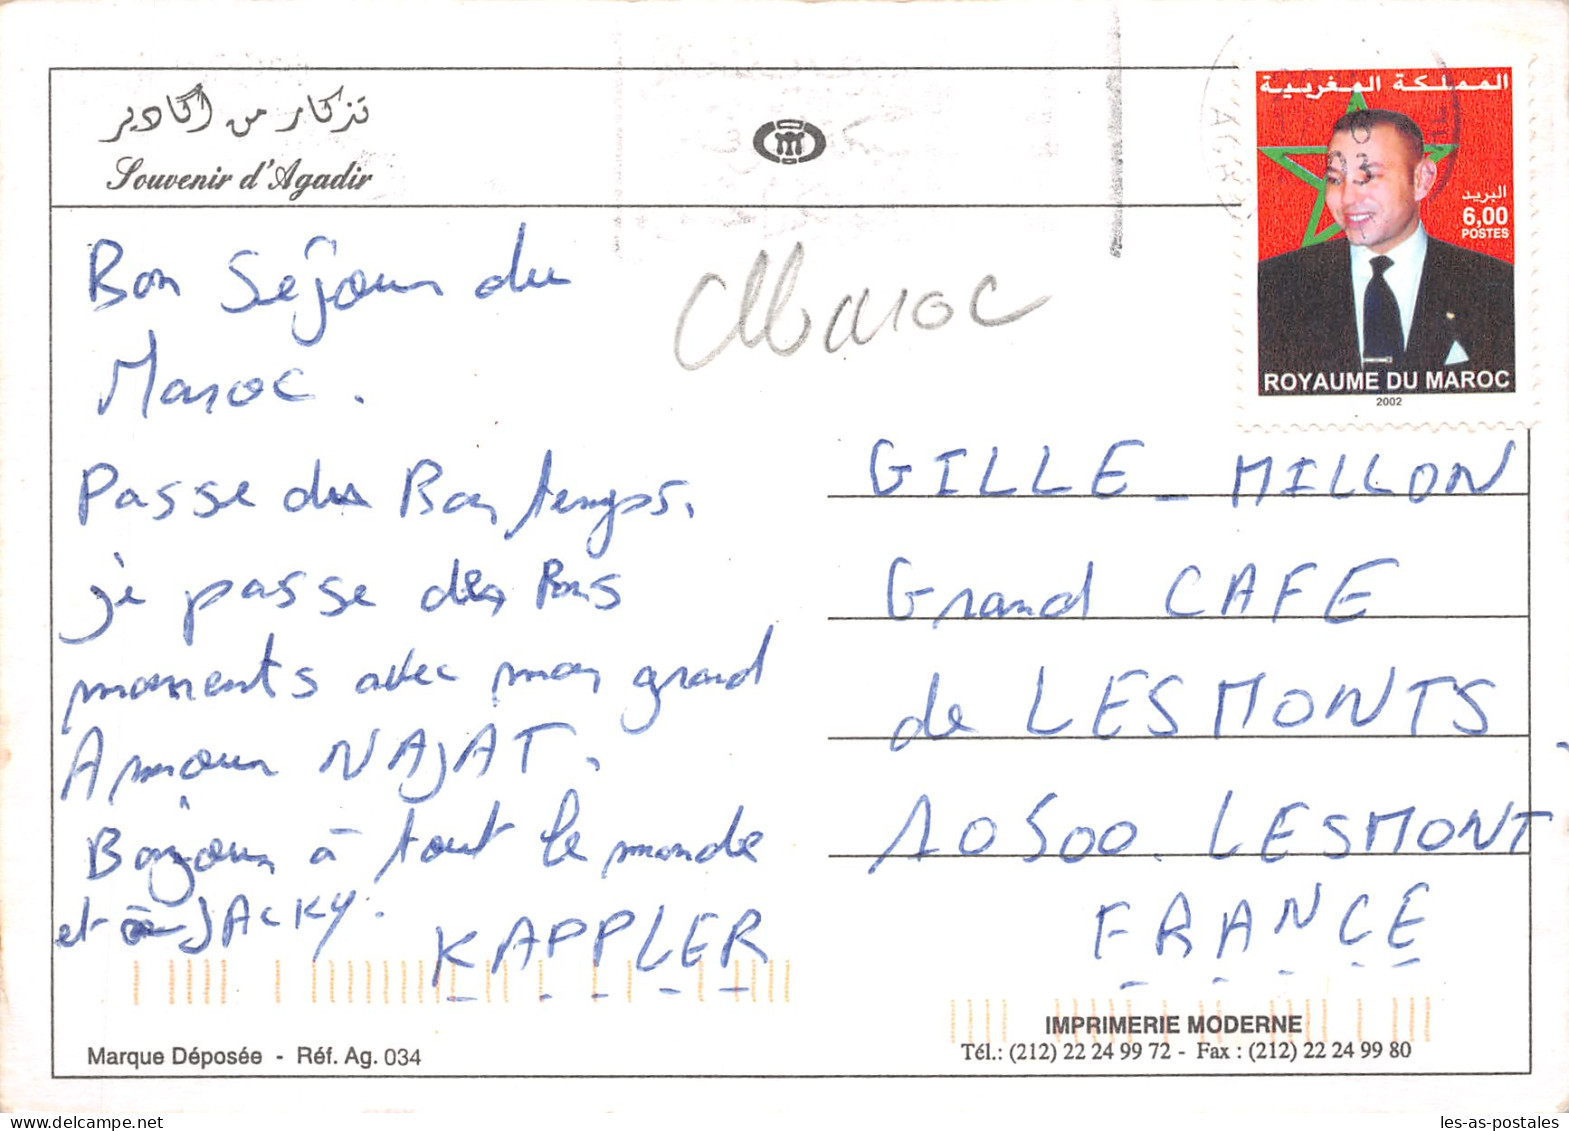 تذكار من أكادير
Souvenir d'Agadir
المملكة المغربية
البريد
6,00
POSTES
ROYAUME DU MAROC
2002
Maroc
Bon Séjour du
Maroc.
Passe du Bon temps.
je passe des Bons
moments avec mon grand
Amour NAJAT.
Bonjour à tout le monde
et à JACKY.
KAPPLER
GILLE - MILLON
Grand CAFE
de LESMONTS
10500. LESMONT
FRANCE
IMPRIMERIE MODERNE
Tél.: (212) 22 24 99 72 - Fax : (212) 22 24 99 80
Marque Déposée - Réf. Ag. 034
delcampe.net
les-as-postales